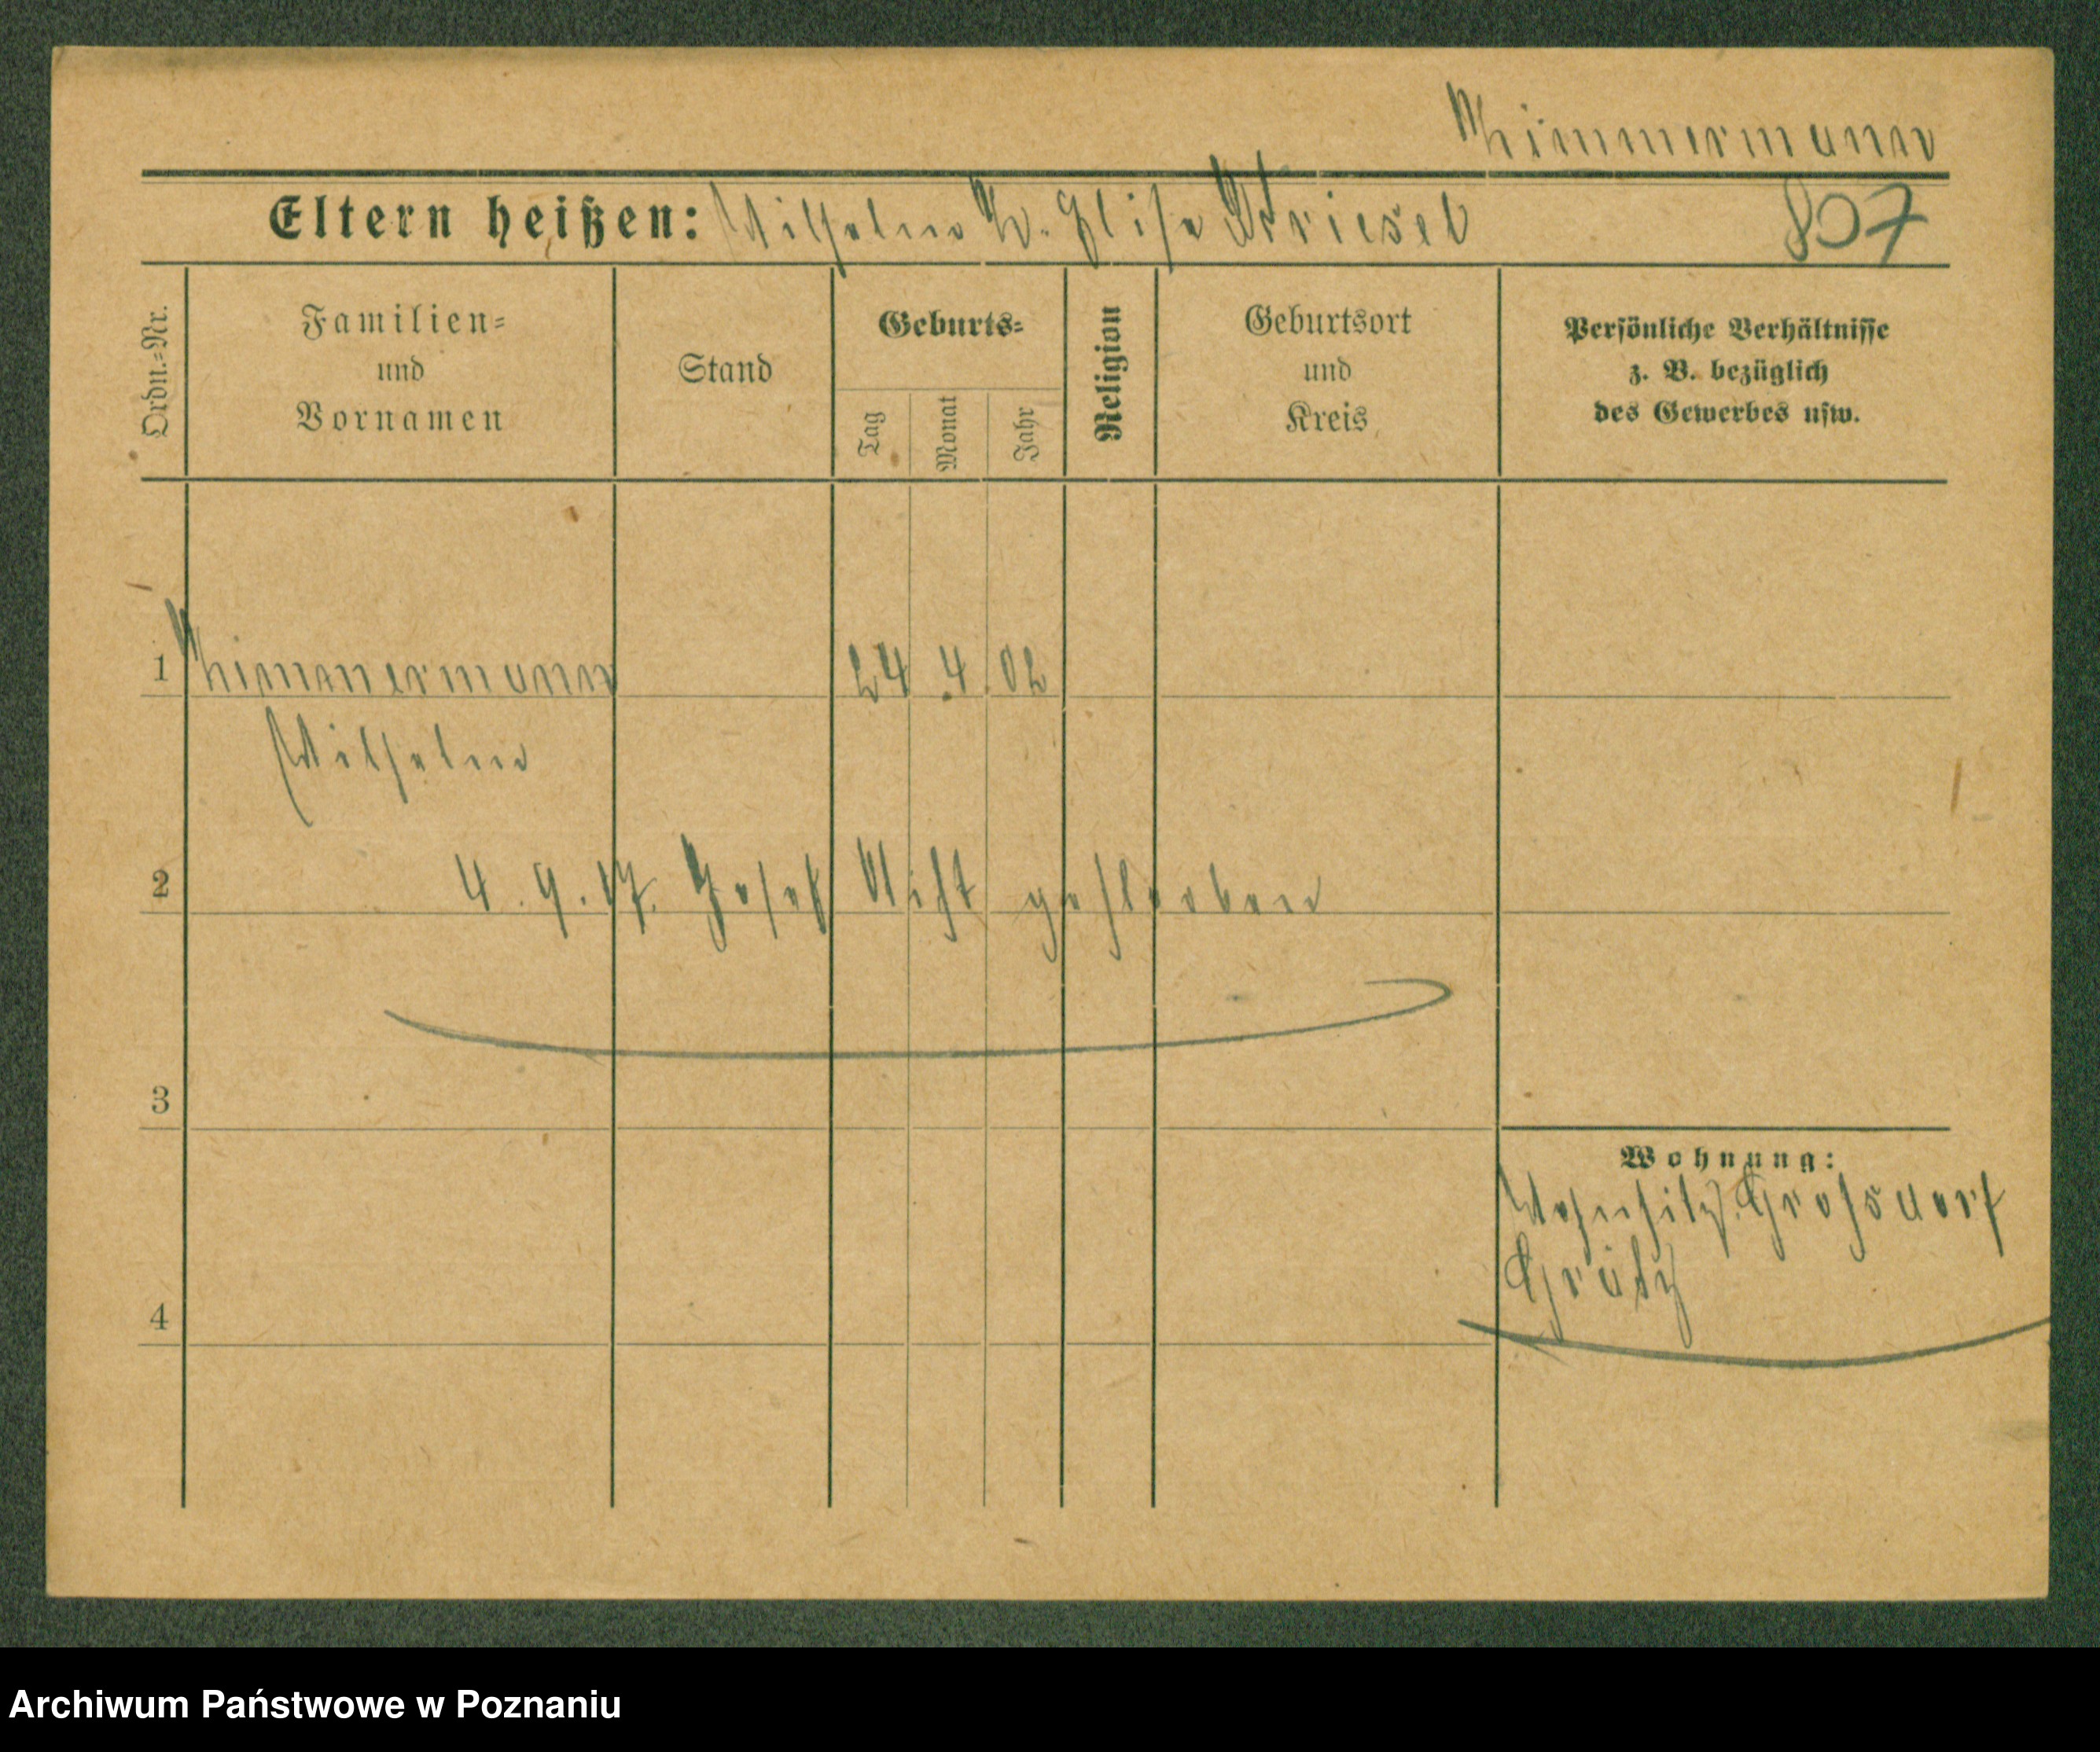 Zimmermann
Eltern heißen: Wilhelm Z. Elise Striesel
807
Ordn.=Nr.
Familien=
und
Vornamen
Stand
Geburts=
Tag
Monat
Jahr
Religion
Geburtsort
und
Kreis
Persönliche Verhältnisse
z. B. bezüglich
des Gewerbes usw.
1 Zimmermann 24 4. 02
Wilhelm
2 4. 9. 17. gestorben
3
Wohnung:
Wohnsitz. Grossdorf
Grätz
4
Archiwum Państwowe w Poznaniu